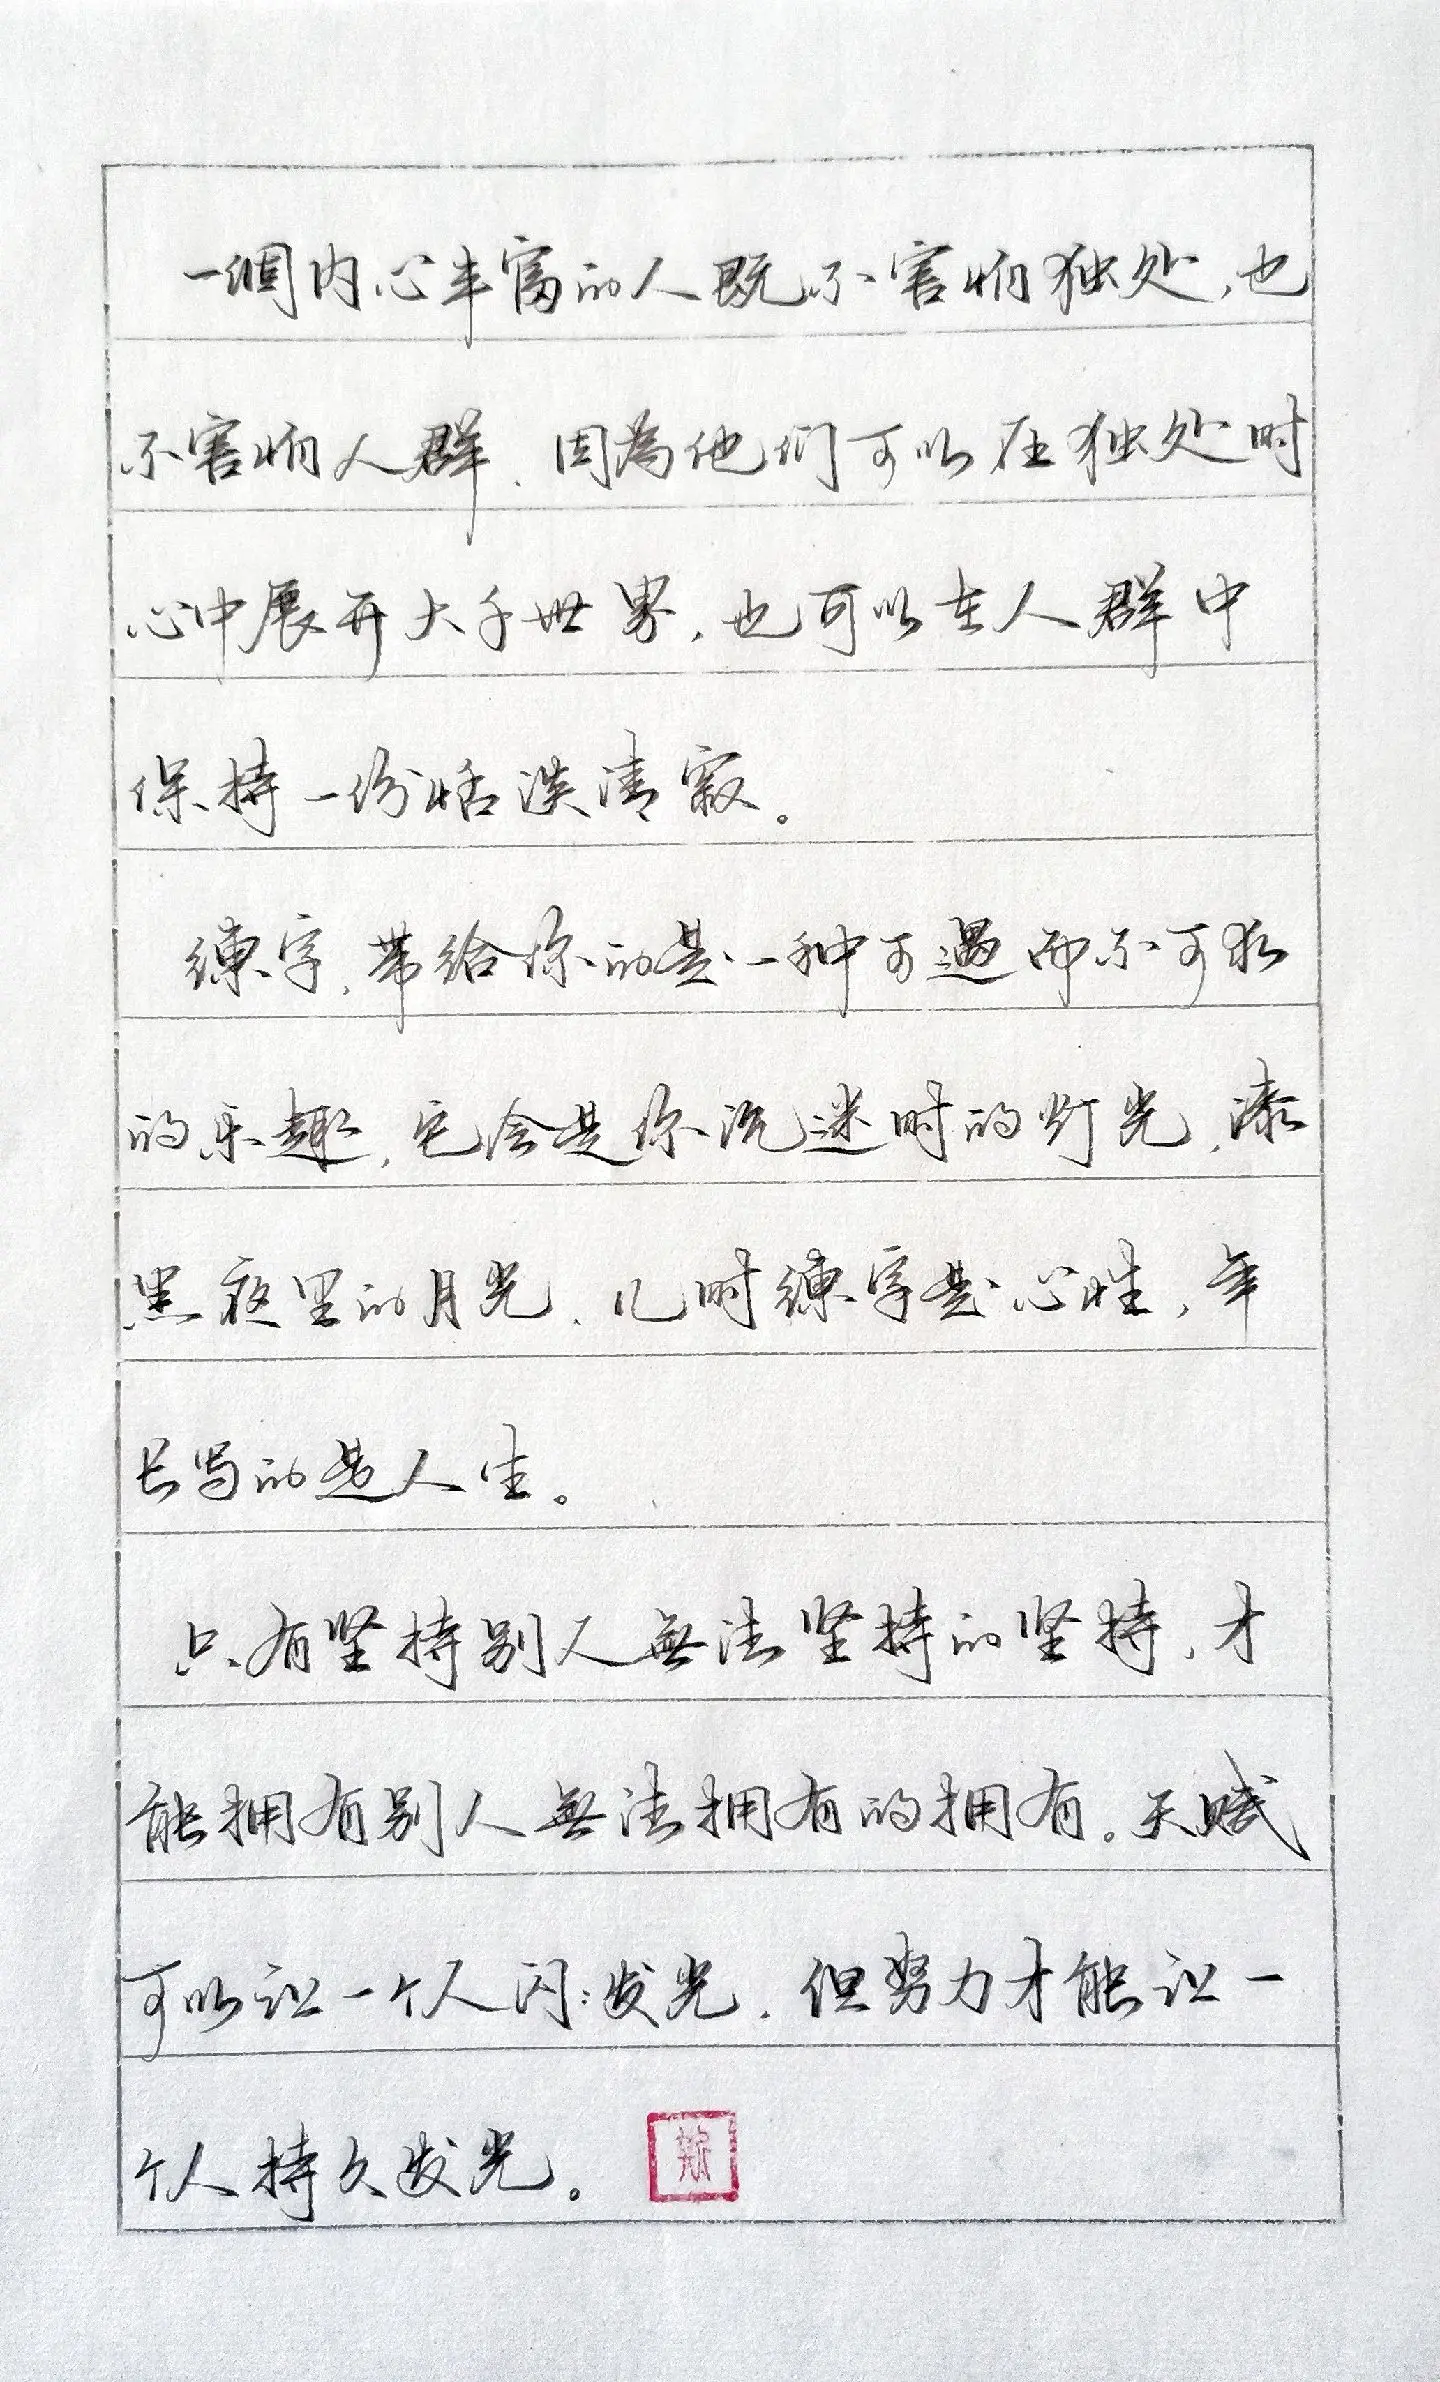 一個内心丰富的人既不害怕独处,也
不害怕人群,因為他们可以在独处时
心中展开大千世界,也可以在人群中
保持一份恬淡清寂。
練字,带给你的是一种可遇而不可求
的乐趣,它会是你沉迷时的灯光,漆
黑夜里的月光,儿时練字是心性,年
长写的是人生。
只有坚持别人無法坚持的坚持,才
能拥有别人無法拥有的拥有。天赋
可以让一个人闪:发光,但努力才能让一
个人持久发光。